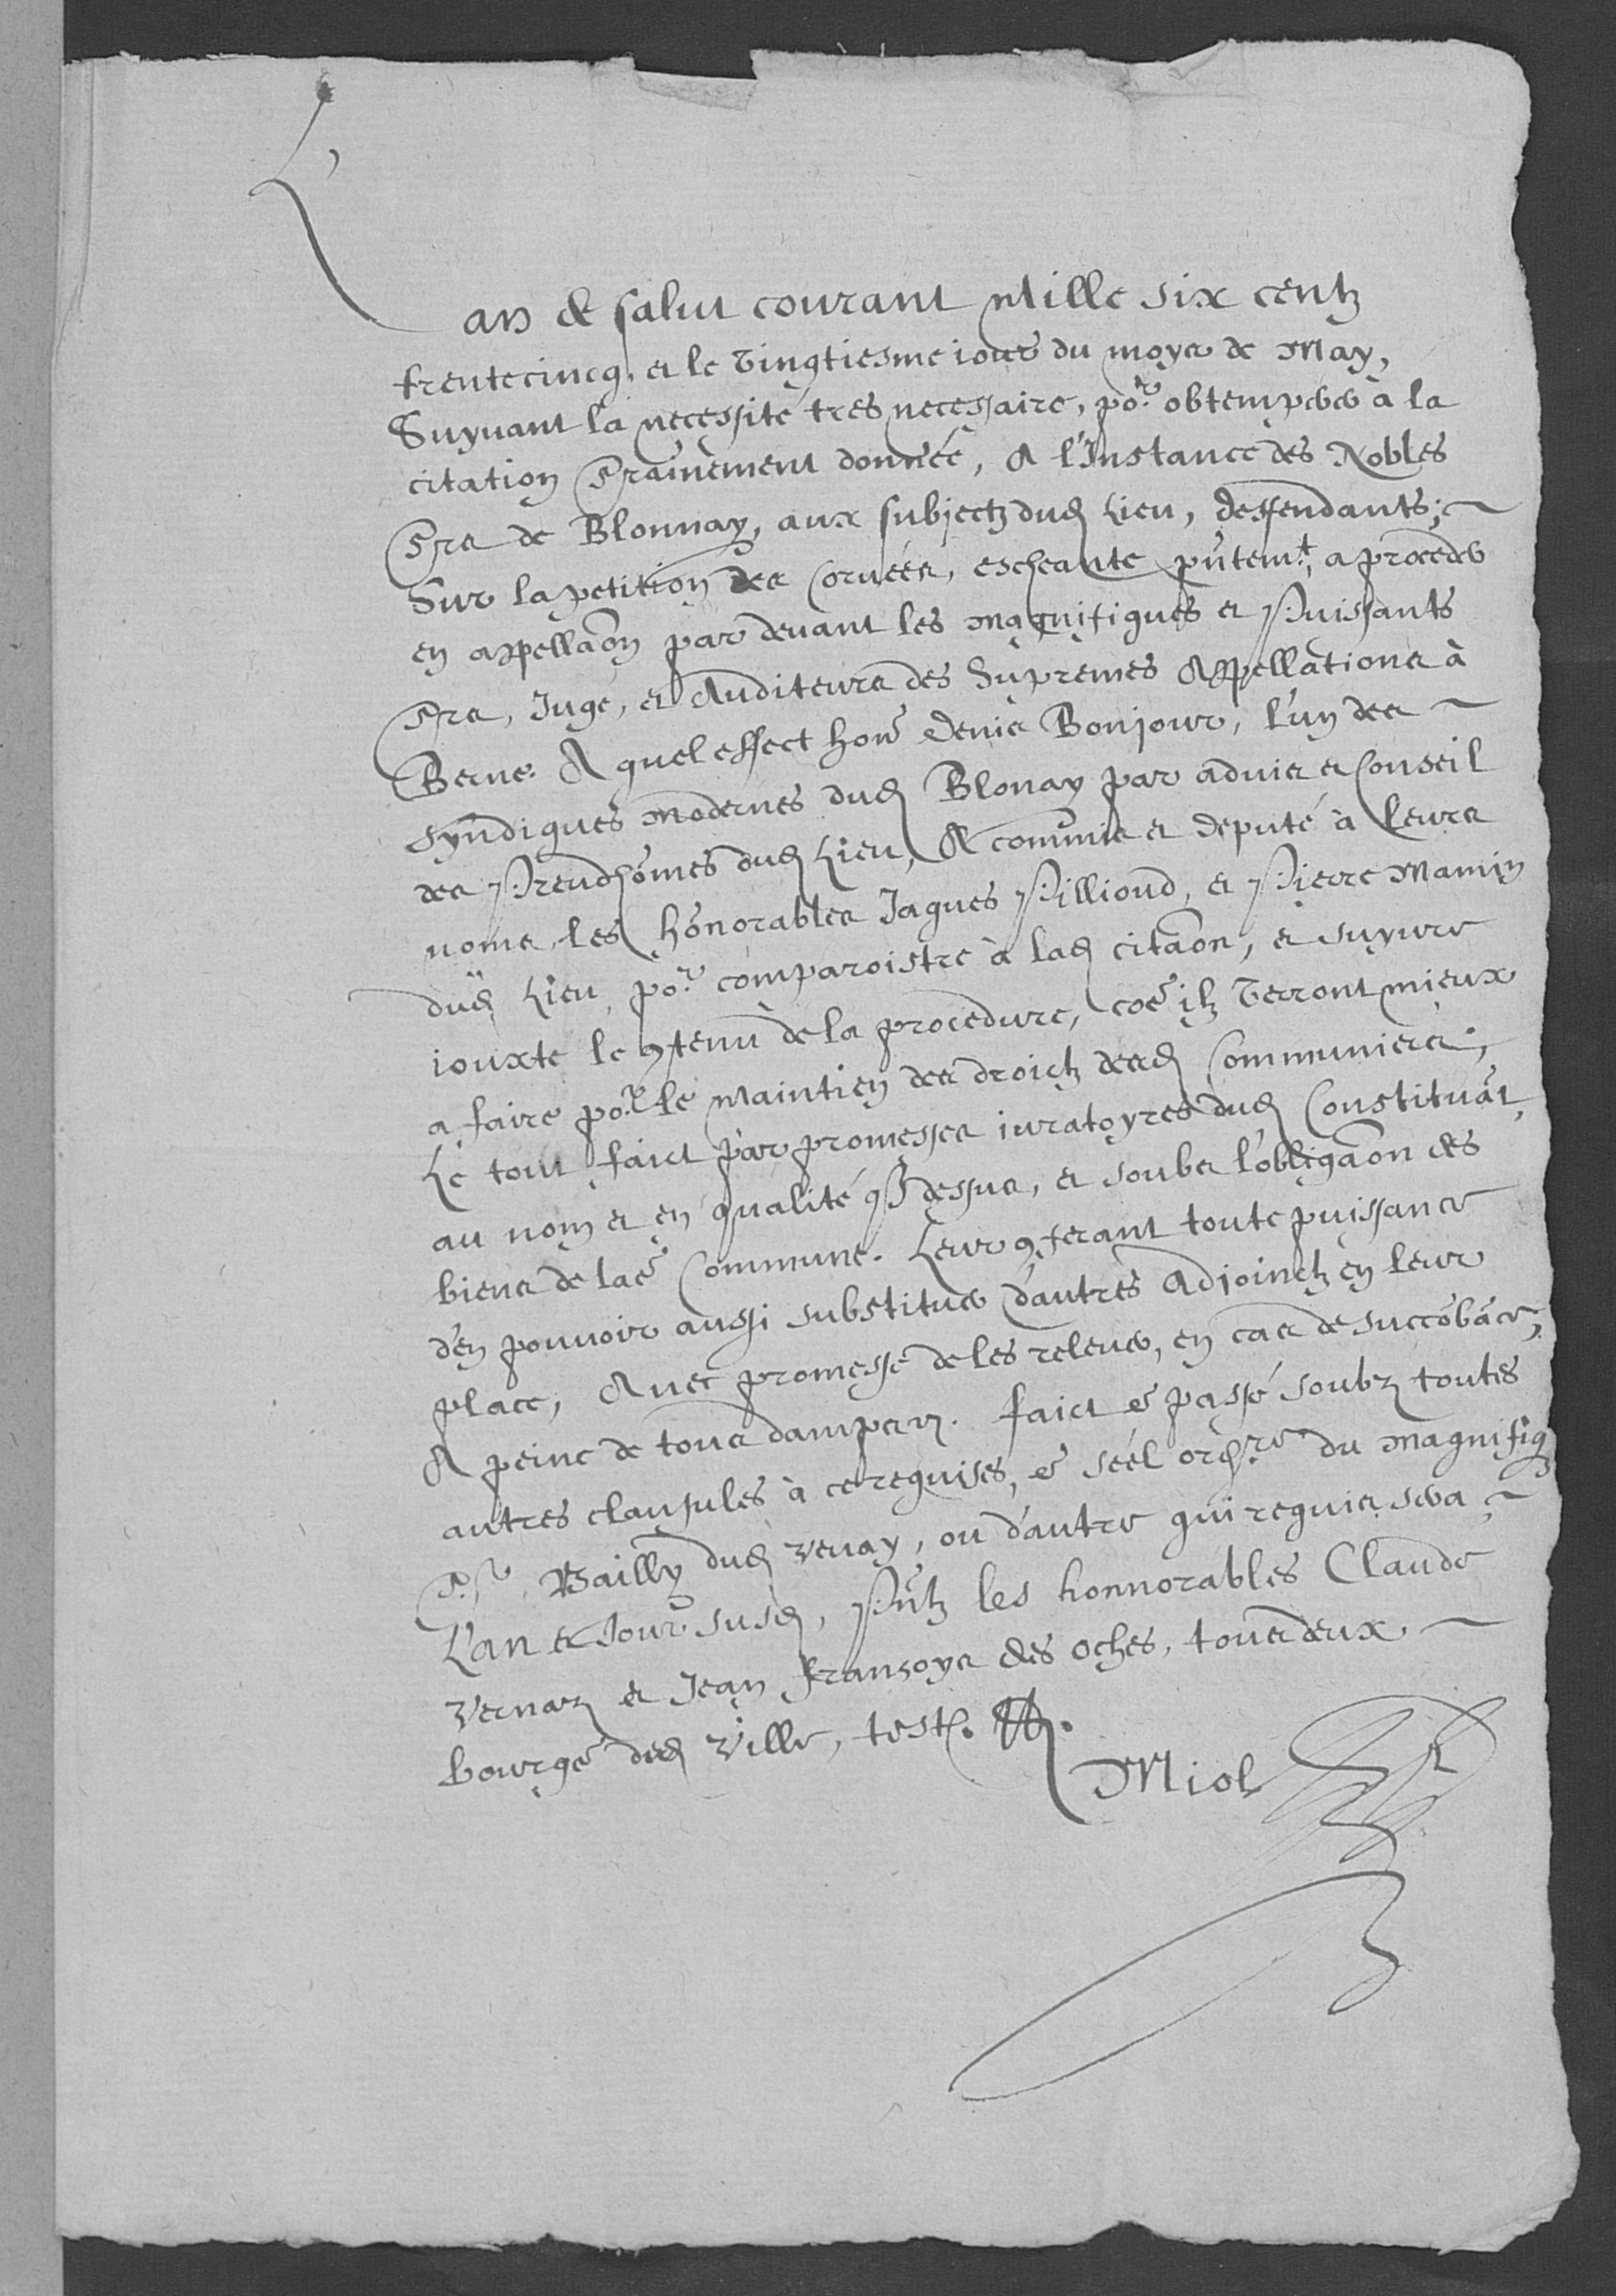 L'an de salut courant Mille six centz
trentecincq, et le vingtiesme iour du moys de May,
Suyvant la necessité tres necessaire, po.r obtemperer à la
citation donnée, A l'Instance des Nobles
Srs de Blonnay, aux subjectz dud Lieu, deffendants;
Sur la petition des Coruées, escheante pntem.t, a proceder
en appellaõn par deuant les magnifiques et Puissants
Srs, Iuge, et Auditeurs des Supremes Appellations à
Berne. A quel effect hon Denis Bonjour, l'un des
syndiques modernes dud Blonay par aduis et Conseil
des Preudhõmes dud Lieu, A commis et deputé à leurs
noms, les honorables Jaques Pilliound, et Pierre Mamin
dud Lieu, po.r comparoistre à lad citaõn, et suyure
iouxte le 9tenu de la procedure, coe ilz verront mieux
a faire po.r le maintien des droictz desd Communiers,
Le tout faict par promesses iuratoyres dud Constituãt,
au nom et en qualité q dessus, et soubs l'obligaõn des
biens de lad Commune. Leur 9ferant toute puissance
d'en pouvoir aussi substituer d'autres Adjoinctz en leur
place, Auec promesse de les releuer, en cas de succõbãce,
A peine de tous dampz. faict & passé soubz toutes
autres clausules à ce requises, & séel ord.re du magnifiq
S.r Bailly dud Veuay, ou d'autre qui requis sera
L'an et Iour susd, Pntz les honnorables Claude
Vernaz et Jean Fransoys des Oches, tous deux
bourge ded Ville, test.
Miol